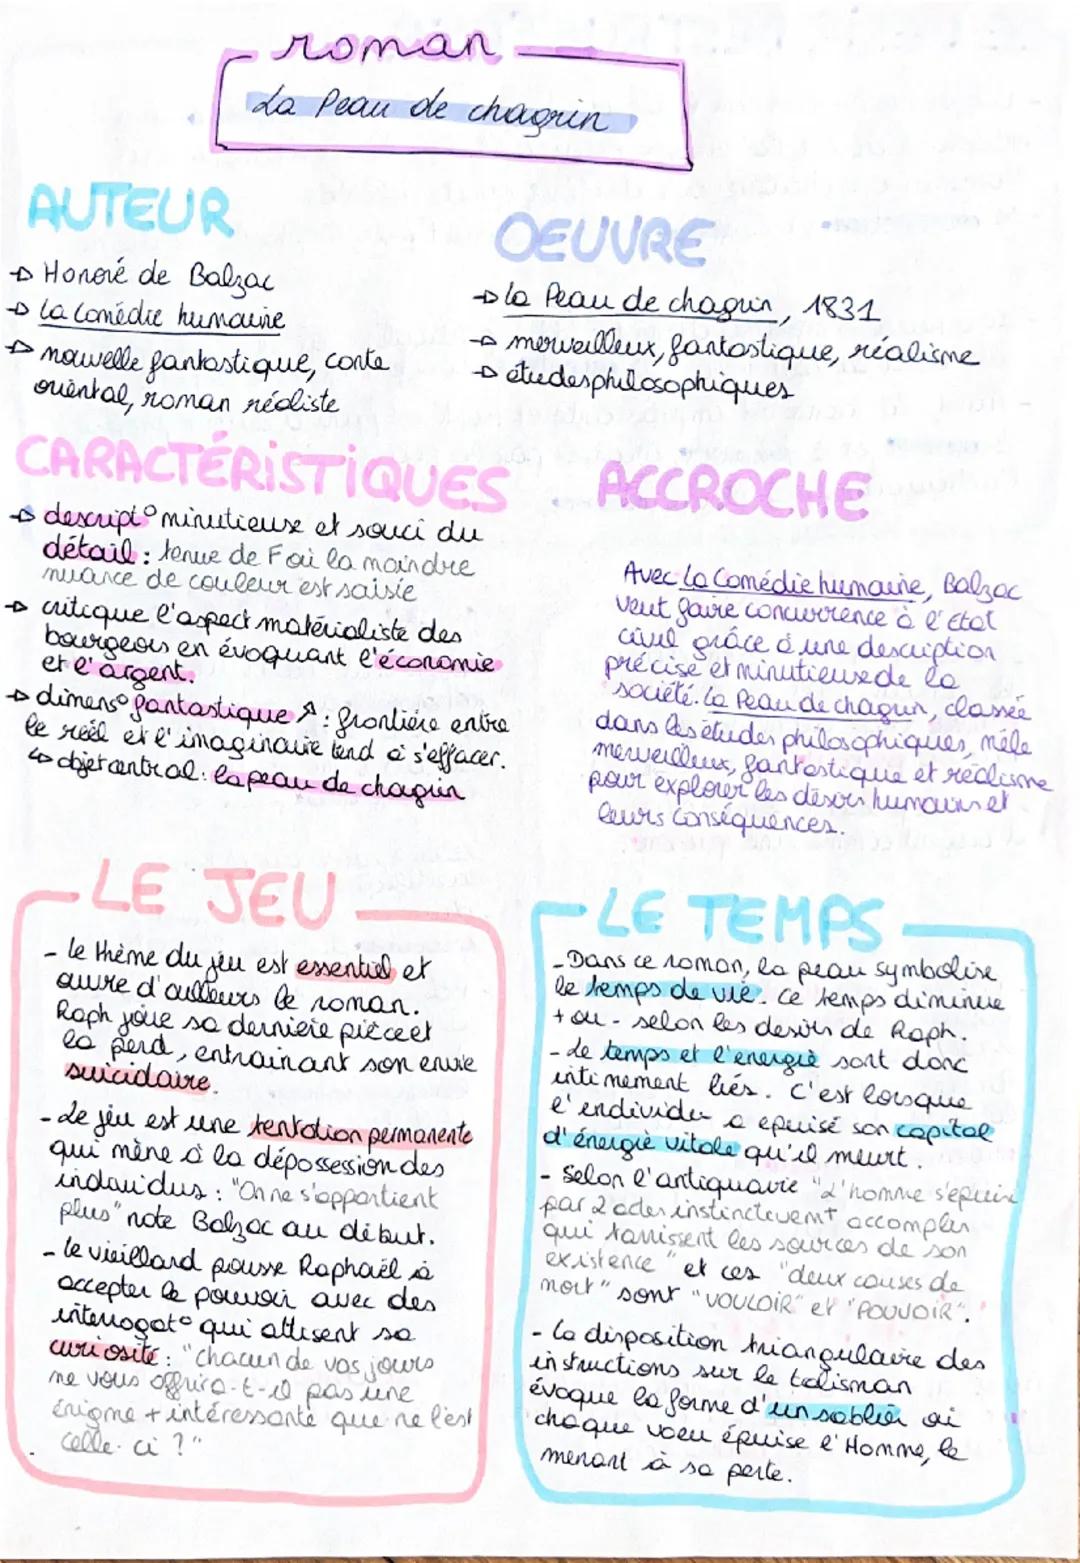 roman
La Peau de chagrin
AUTEUR
→ Honoré de Balzac
→ La Comédie humaine
→ nouvelle fantastique, conte
oriental, roman réaliste
OEUVRE
→ La Peau de chagrin, 1831
→ merveilleux, fantastique, réalisme
→ études philosophiques
CARACTÉRISTIQUES
→ descript° minutieuse et souci du
détail : tenue de F où la moindre
nuance de couleur est saisie
→ critique l'aspect matérialiste des
bourgeois en évoquant l'économie
et l'argent.
→ dimens° fantastique : frontière entre
le réel et l'imaginaire tend à s'effacer.
↳ objet central : la peau de chagrin
ACCROCHE
Avec La Comédie humaine, Balzac
veut faire concurrence à l'Etat
civil grâce à une description
précise et minutieuse de la
société. La Peau de chagrin, classée
dans les études philosophiques, mêle
merveilleux, fantastique et réalisme
pour explorer les désirs humains et
leurs conséquences.
LE JEU
- Le thème du jeu est essentiel et
ouvre d'ailleurs le roman.
Raph joue sa dernière pièce et
la perd, entrainant son envie
suicidaire.
- Le jeu est une tentation permanente
qui mène à la dépossession des
individus : "On ne s'appartient
plus" note Balzac au début.
- le vieillard pousse Raphaël à
accepter le pouvoir avec des
interrogat° qui attisent sa
curiosité : "chacun de vos jours
ne vous offrira-t-il pas une
énigme + intéressante que ne l'est
celle-ci ?"
LE TEMPS
- Dans ce roman, la peau symbolise
le temps de vie. Ce temps diminue
+ ou - selon les désirs de Raph.
- Le temps et l'énergie sont donc
intimement liés. C'est lorsque
l'individu a épuisé son capital
d'énergie vitale qu'il meurt.
- Selon l'antiquaire "L'homme s'épuise
par 2 actes instinctivemt accomplis
qui tarissent les sources de son
existence" et ces "deux causes de
mort" sont "VOULOIR" et "POUVOIR".
- La disposition triangulaire des
instructions sur le talisman
évoque la forme d'un sablier où
chaque voeu épuise l'Homme, le
menant à sa perte.